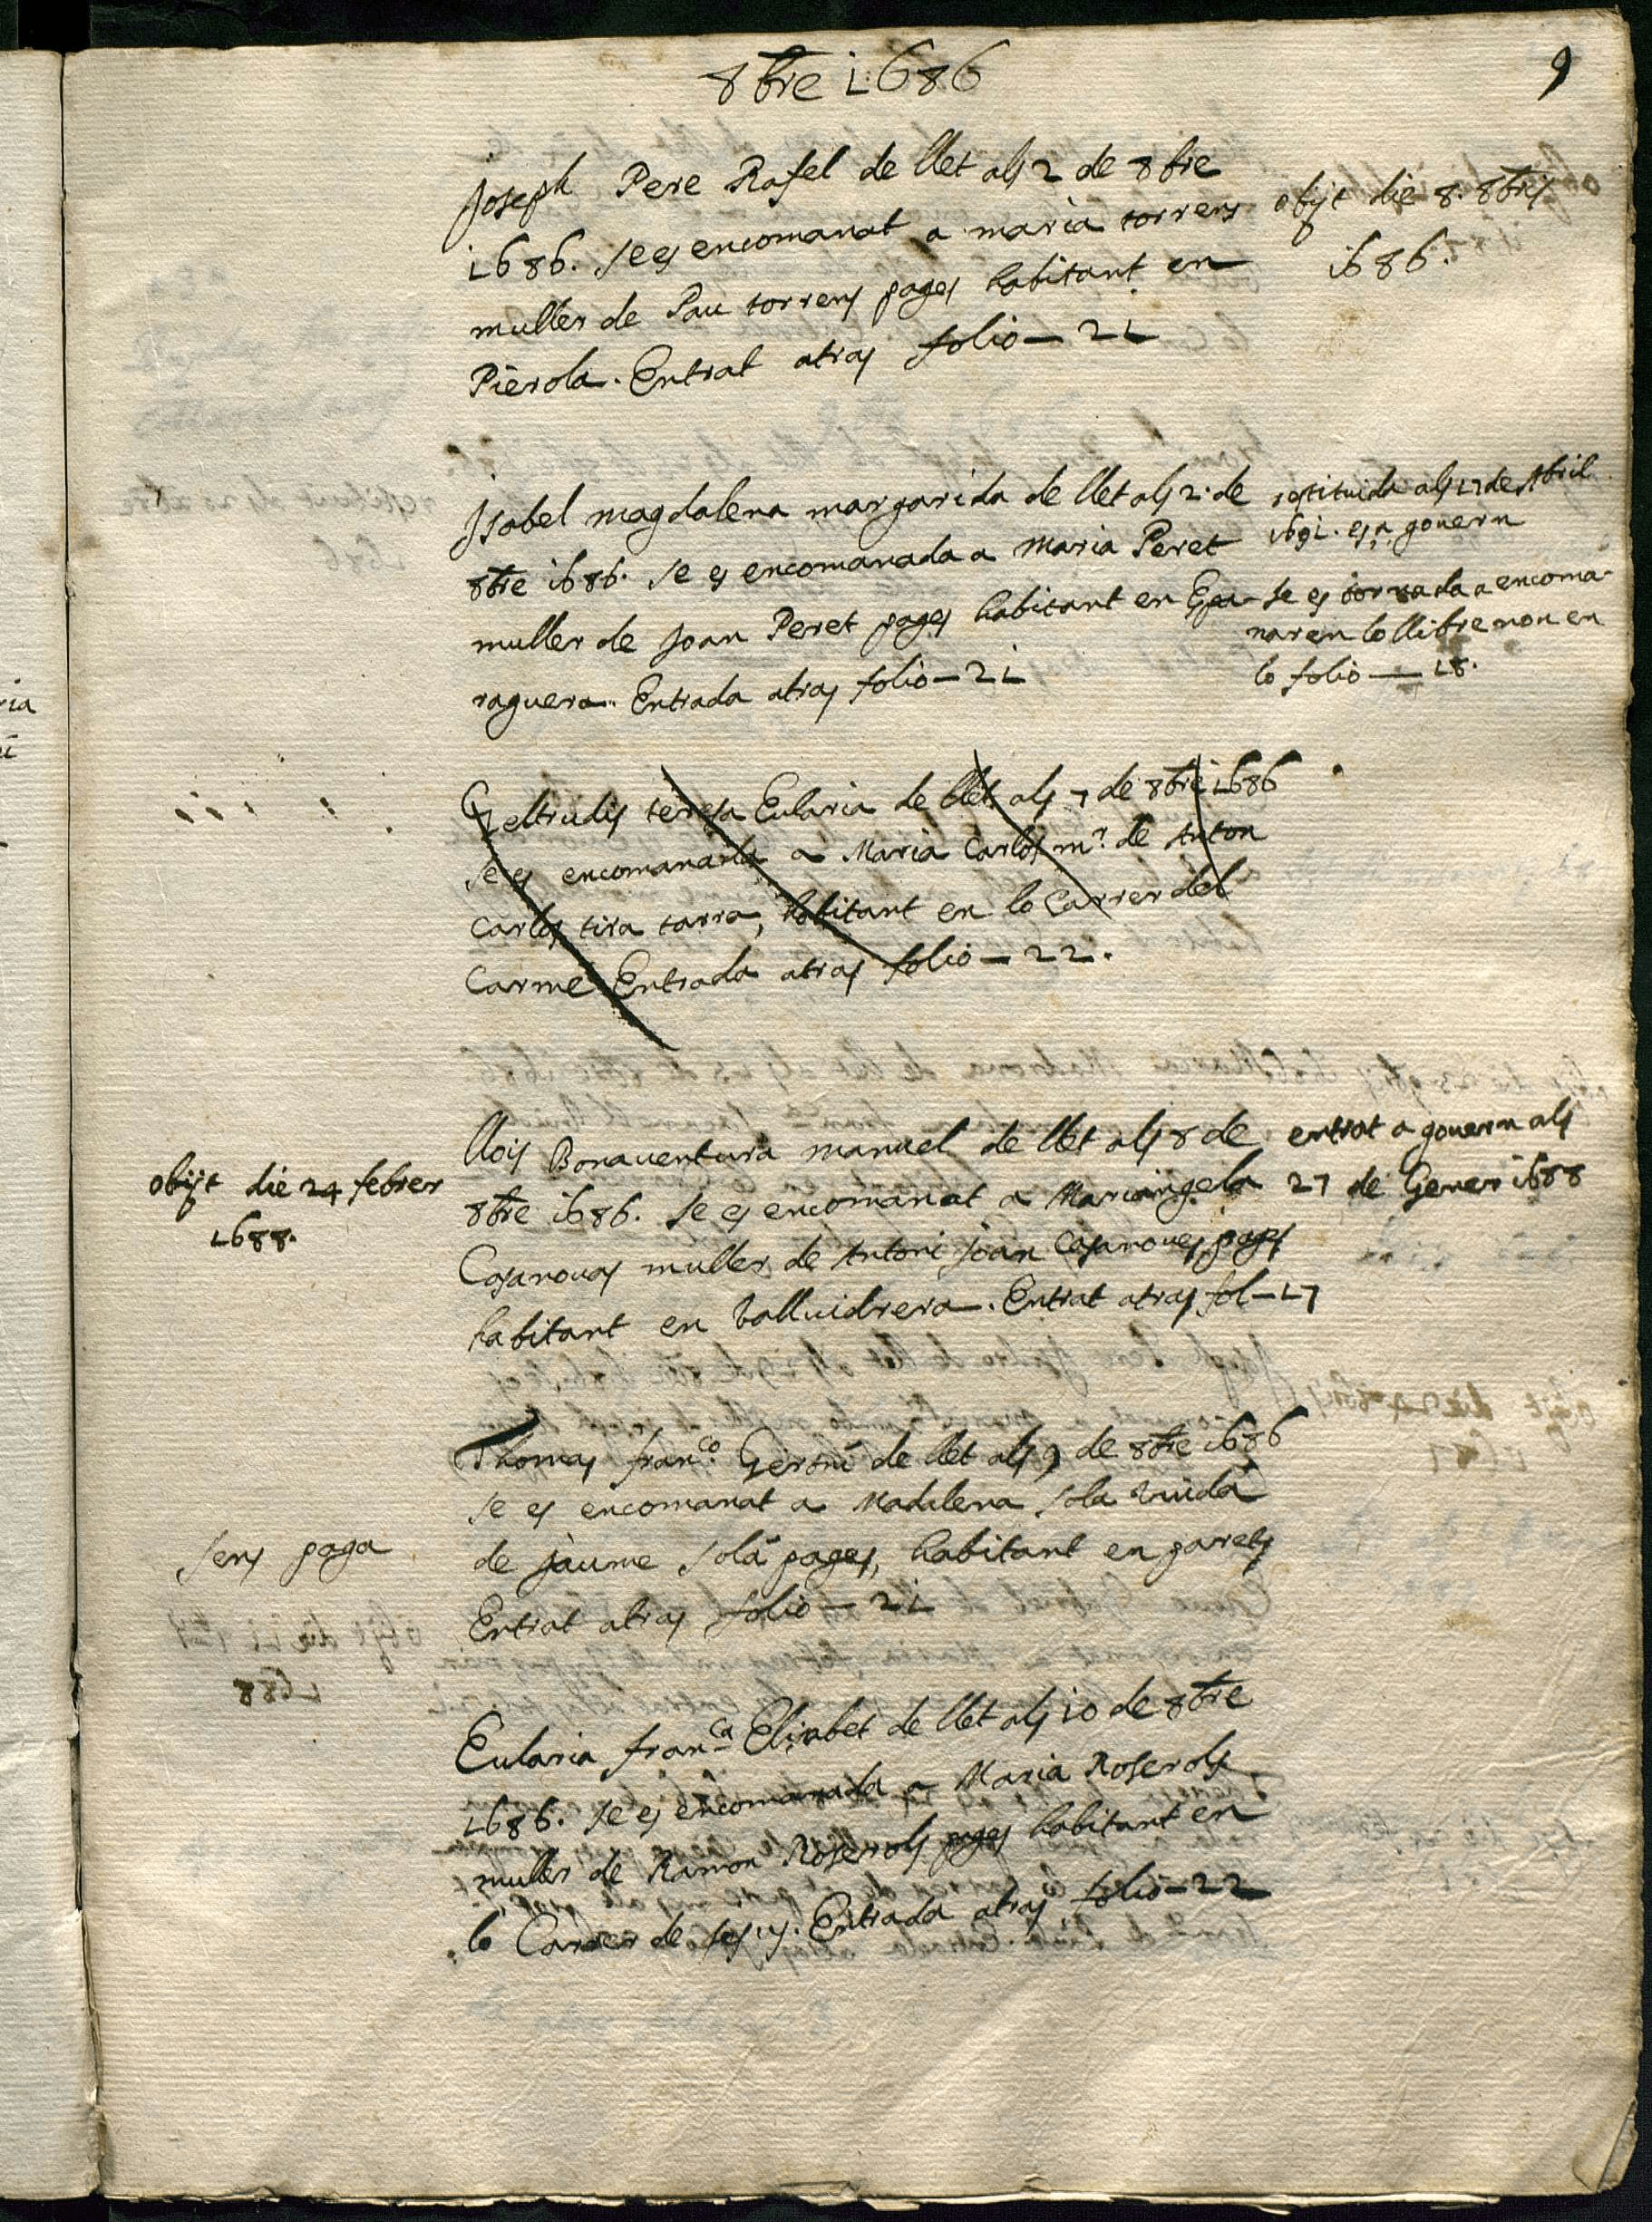 8bre 1686
9
Joseph Pere Rafel de llet als 2 de 8bre
1686. se es encomanat a maria torrens
muller de Pau torrens pages habitant en
Pierola. Entrat atras folio — 21
obijt die 8. 8bris
1686.
Isabel magdalena margarida de llet als 2. de
8bre 1686. se es encomanada a Maria Peret
muller de Joan Peret pages habitant en Espa-
raguera. Entrada atras folio — 21
restituida als 17 de Abril
1691. es a govern
se es tornada a encoma-
nar en lo llibre non en
lo folio — 18.
Geltrudis teresa Eularia de llet als 7 de 8bre 1686
se es encomanada a Maria Carlos mr. de Anton
Carlos tira tarra, habitant en lo Carrer del
Carme Entrada atras folio — 22.
obijt die 24 febrer
1688.
llois Bonaventura manuel de llet als 8 de
8bre 1686. se es encomanat a Mariangela
Casanovas muller de Antoni Joan Casanoves pages
habitant en Vallvidrera. Entrat atras fol — 17
entrat a govern als
27 de Gener 1688
Thomas franco. Gersni de llet als 9 de 8bre 1686
se es encomanat a Madalena Sola viuda
de Jaume Sola pages, habitant en parets
Entrat atras folio — 21
sens paga
Eularia franca Elisabet de llet als 10 de 8bre
1686. se es encomanada a Maria Roserols
muller de Ramon Roserols pages habitant en
lo Carrer de Entrada atras folio — 22